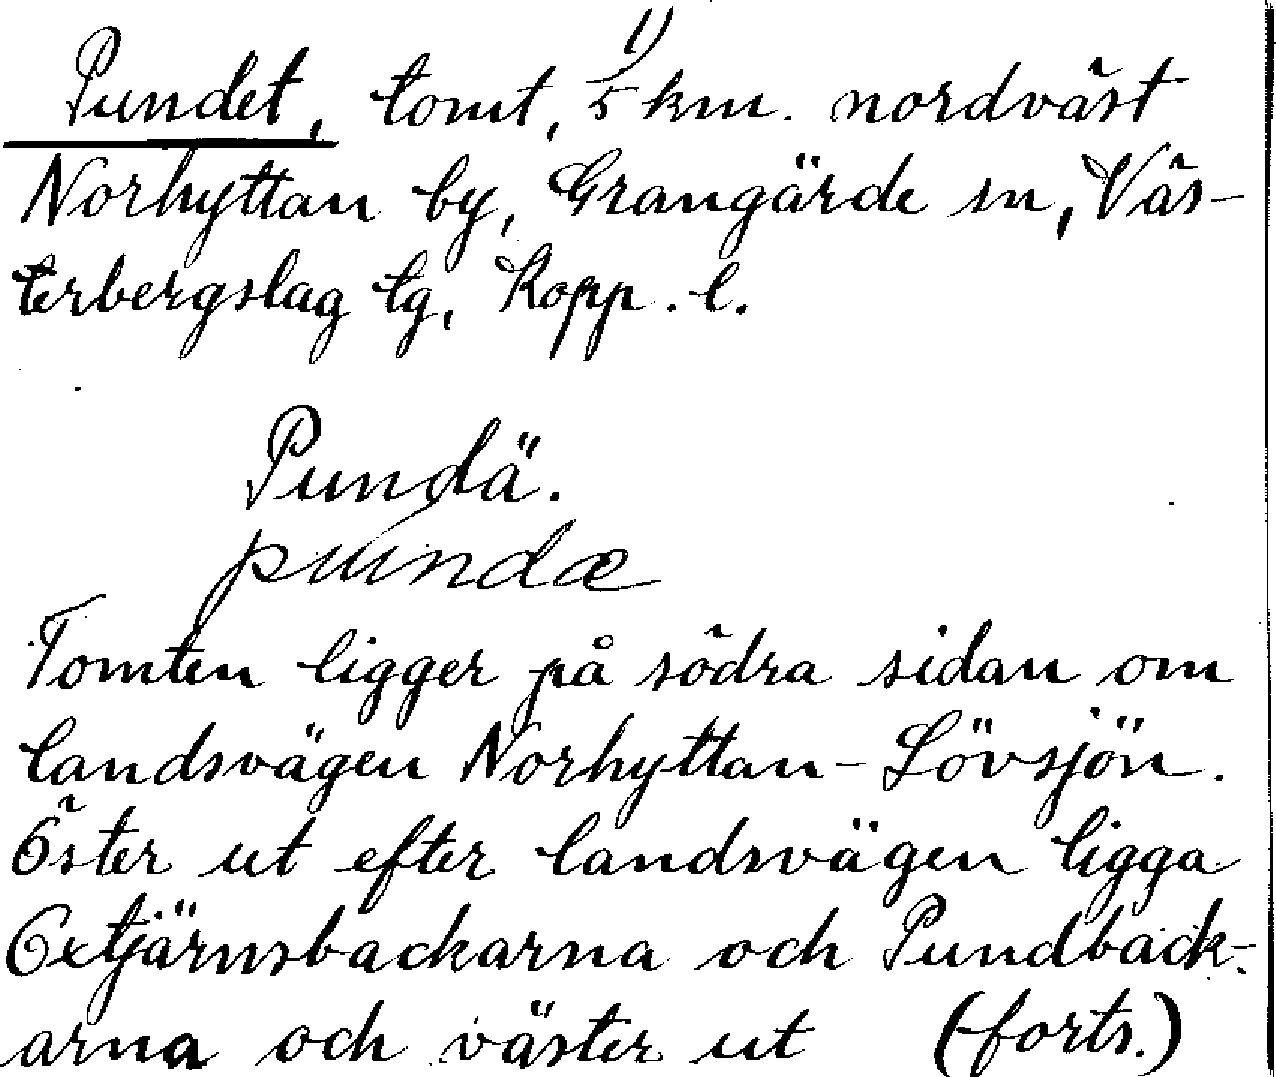 1)
Pundet, tomt, 5 km. nordväst
Norhyttan by, Grangärde sn, Väs-
terbergslag tg, Kopp. l.
Pundä.
pundæ
Tomten ligger på södra sidan om
landsvägen Norhyttan - Lövsjön.
Öster ut efter landsvägen ligga
Oxtjärnsbackarna och Pundback-
arna och väster ut (forts.)